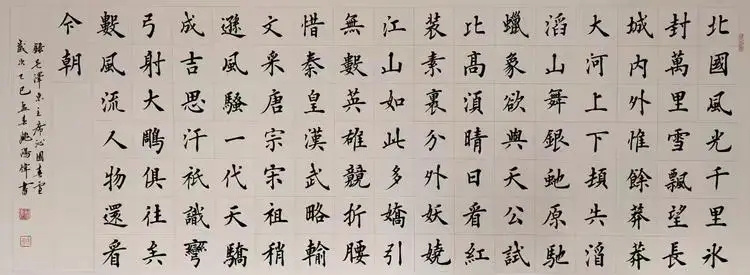 北國風光千里冰
封萬里雪飄望長
城内外惟餘莽莽
大河上下頓失滔
滔山舞銀虵原馳
蠟象欲與天公試
比高須晴日看紅
裝素裹分外妖嬈
江山如此多嬌引
無數英雄競折腰
惜秦皇漢武略輸
文采唐宗宋祖稍
遜風騷一代天驕
成吉思汗祇識彎
弓射大鵰俱往矣
數風流人物還看
今朝
錄毛澤東主席沁園春雪
歲次乙巳孟春書